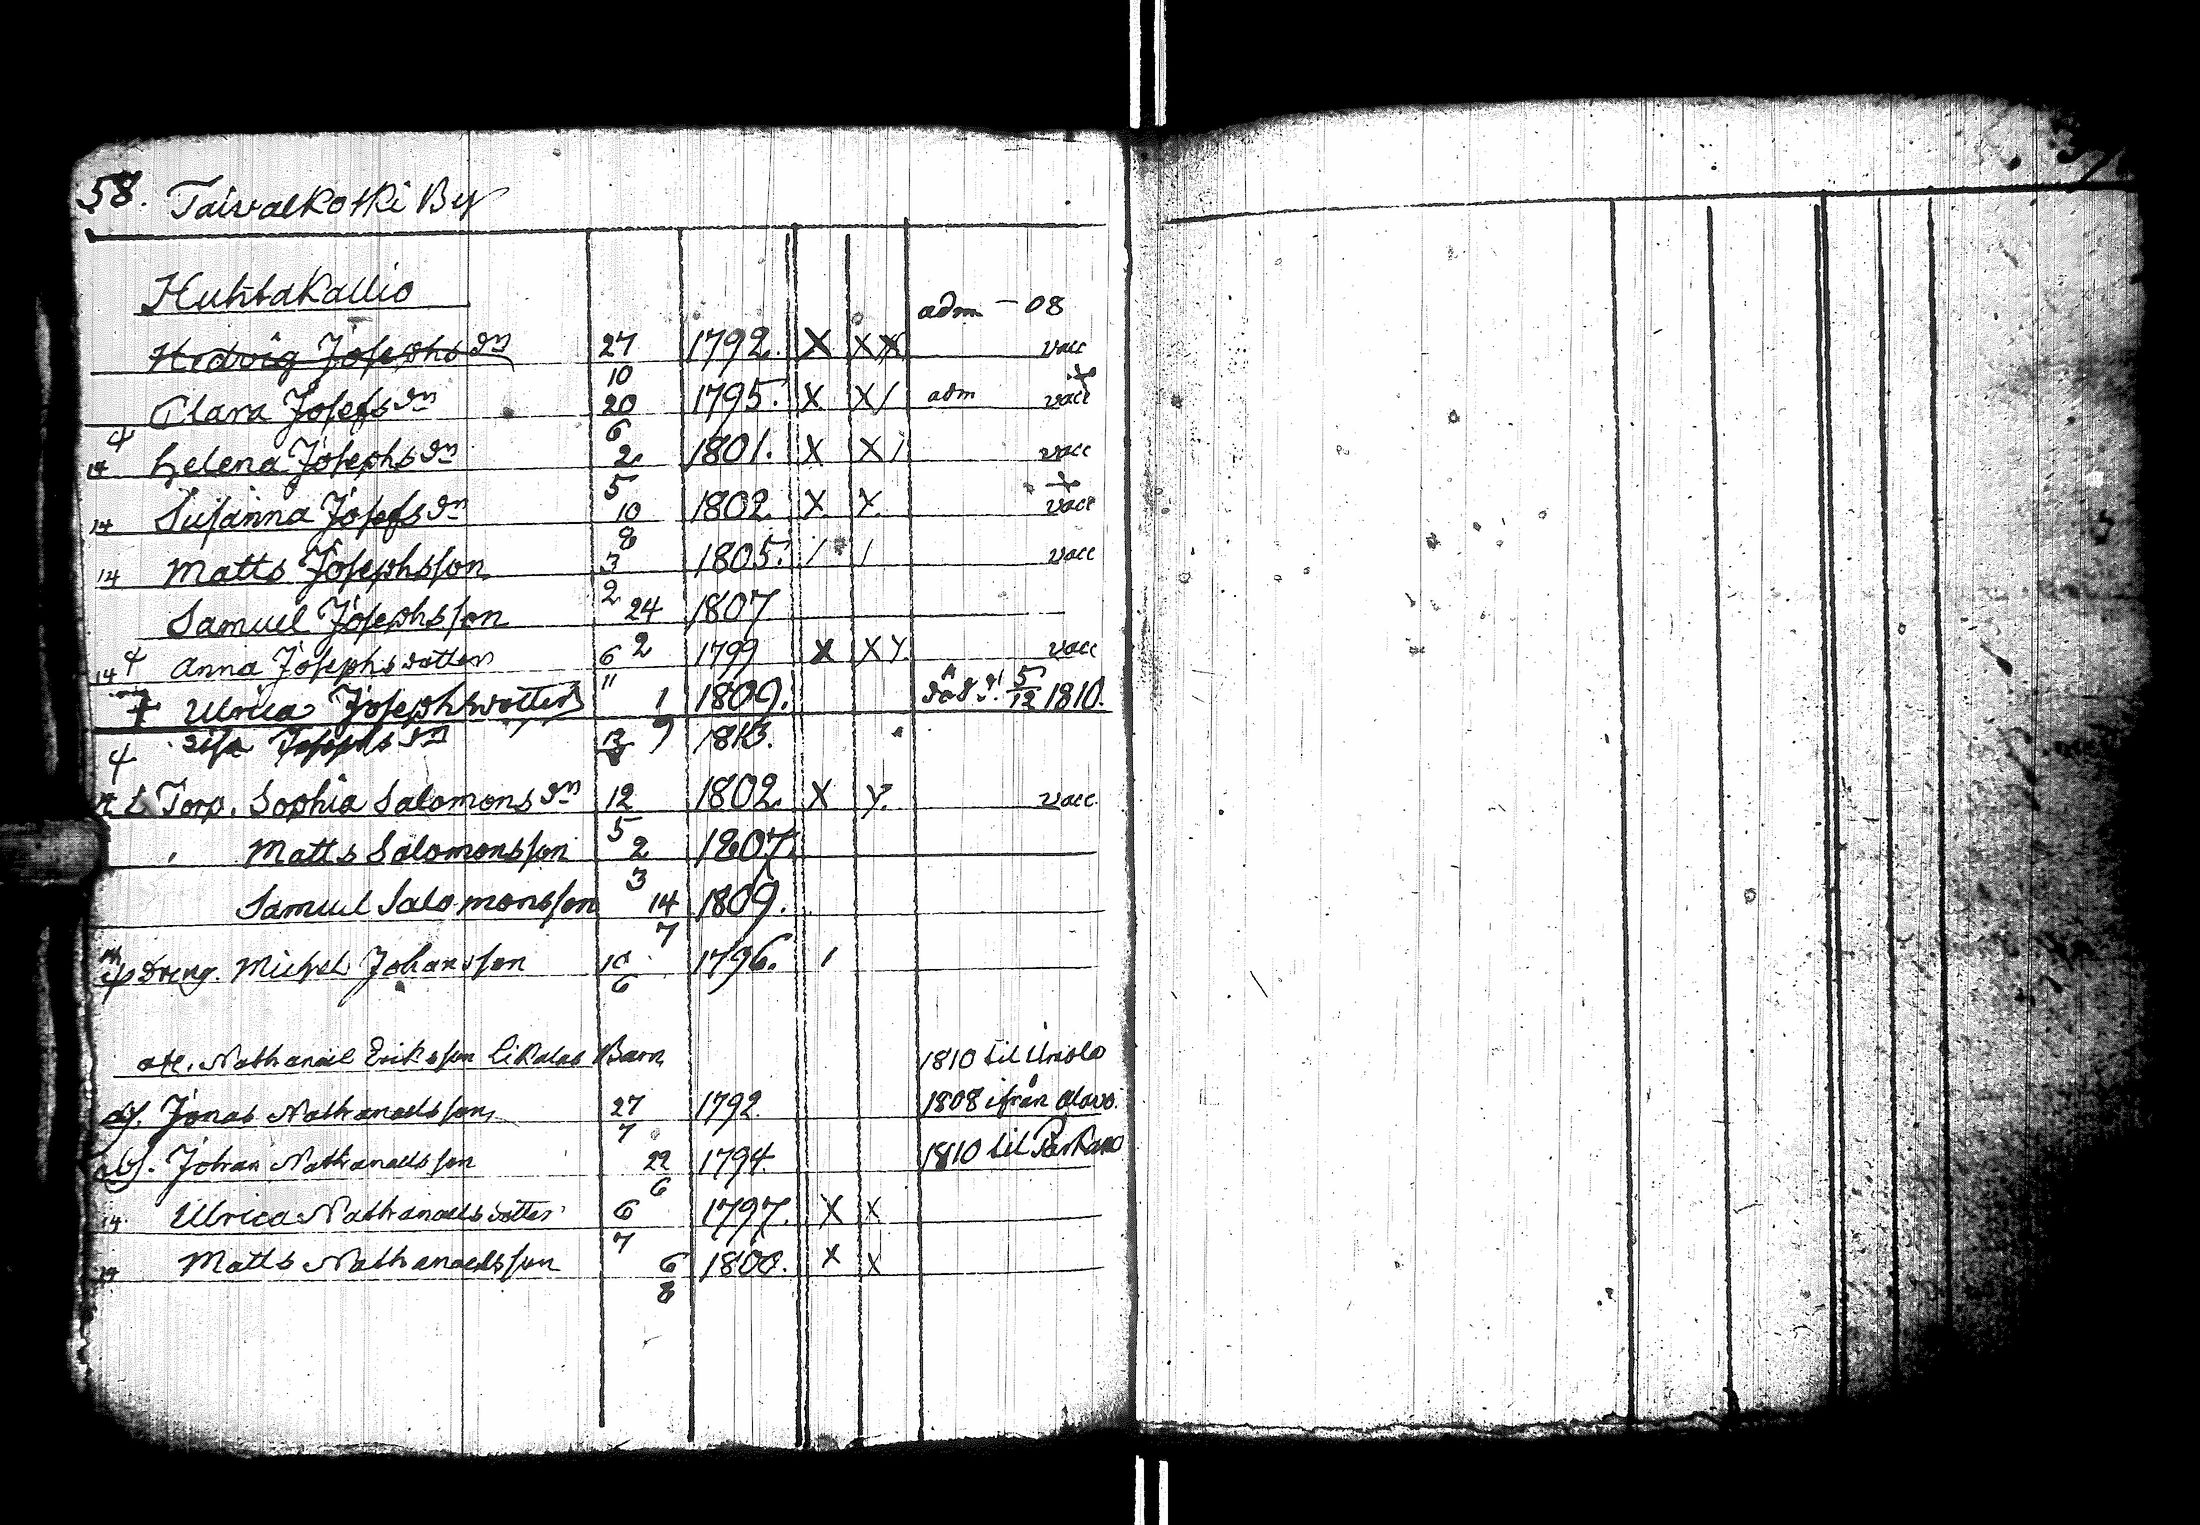 58. Taivalkoski By
Huhtakallio
adm - 08
Hedvig Josephsdr 27/10 1792. X X X vacc
Clara Josefsdr 20/6 1795. X X / adm vacc
14 Helena Josephsdr 2/5 1801. X X / vacc
14 Susanna Josefsdr 10/8 1802. X. X. vacc
14 Matts Josephsson 3/2 1805. / / vacc
Samuel Josephsson 24/2 1807
14 Anna Josephsdotter 6/11 1799 X X Y. vacc
Ulrica Josephsdotter 1/9 1809. död d. 5/12 1810.
Josephsdr 13 1813.
Torp. Sophia Salomonsdr 12/5 1802. X Y. vacc.
Matts Salomonsson 2/3 1807.
Samuel Salomonsson 14/7 1809.
dreng. Michel Johansson 10/6 1796. /
Nathanael Eriksson Barn 1810 til
Jonas Nathanaelsson 27/7 1792. 1808 ifrån
Johan Nathanaelsson 22/6 1794 1810 til Parkano
14. Ulrica Nathanaelsdotter 6/7 1797. X X
Matts Nathanaelsson 6/8 1800. X X